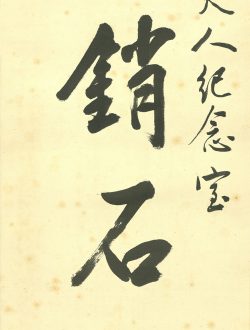 人紀念室
銷石